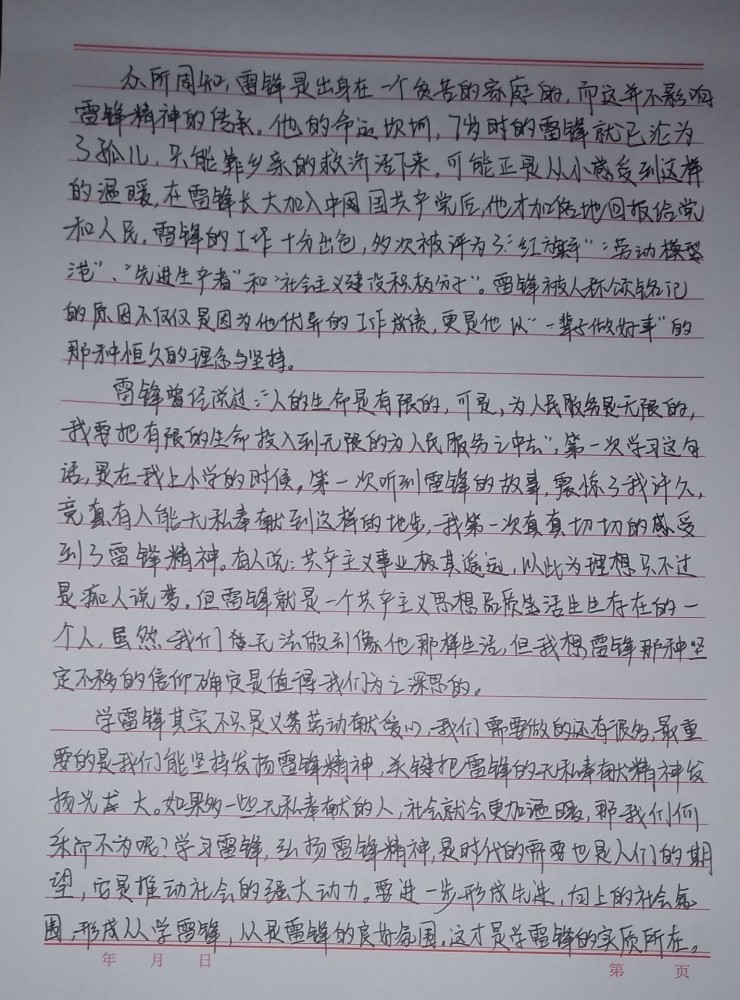 众所周知,雷锋是出身在一个贫苦的家庭的,而这并不影响
雷锋精神的传承。他的命运坎坷,7岁时的雷锋就已沦为
了孤儿,只能靠乡亲的救济活下来。可能正是从小感受到这样
的温暖,在雷锋长大加入中国国共产党后,他才加倍地回报给党
和人民。雷锋的工作十分出色,多次被评为了“红旗手”“劳动模型
范”、“先进生产者”和“社会主义建设积极分子”。雷锋被人称颂铭记
的原因不仅仅是因为他优异的工作成绩,更是他以“一辈子做好事”的
那种恒久的理念与坚持。
雷锋曾经说过:“人的生命是有限的,可是,为人民服务是无限的,
我要把有限的生命投入到无限的为人民服务之中去”,第一次学习这句
话,是在我上小学的时候,第一次听到雷锋的故事,震惊了我许久,
竟真有人能无私奉献到这样的地步,我第一次真真切切的感受
到了雷锋精神。有人说:共产主义事业极其遥远,以此为理想只不过
是痴人说梦。但雷锋就是一个共产主义思想品质生活生生存在的一
个人,虽然我们无法做到像他那样生活,但我想雷锋那种坚
定不移的信仰确实是值得我们为之深思的。
学雷锋其实不只是义务劳动献爱心,我们需要做的还有很多,最重
要的是我们能坚持发扬雷锋精神,关键把雷锋的无私奉献精神发
扬光大。如果多一些无私奉献的人,社会就会更加温暖,那我们何
乐而不为呢?学习雷锋,弘扬雷锋精神,是时代的需要也是人们的期
望,它是推动社会的强大动力。要进一步形成先进、向上的社会氛
围,形成人人学雷锋,人人是雷锋的良好氛围。这才是学雷锋的实质所在。
年 月 日 第 页